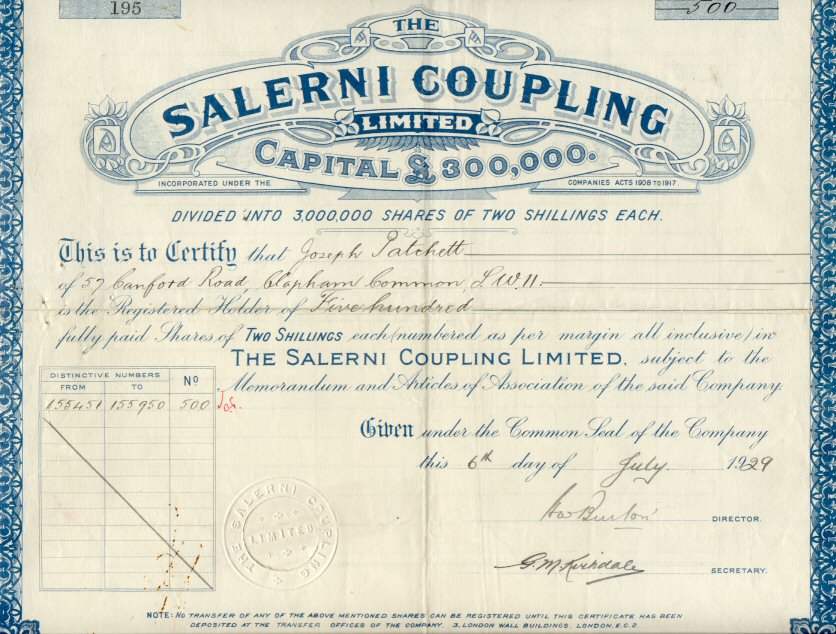 195
500
THE
SALERNI COUPLING
LIMITED
CAPITAL £300,000.
INCORPORATED UNDER THE COMPANIES ACTS 1908 TO 1917
DIVIDED INTO 3,000,000 SHARES OF TWO SHILLINGS EACH.
This is to Certify that Joseph Patchett
of 57 Canford Road, Clapham Common, S.W.11.
is the Registered Holder of Five hundred
fully paid Shares of TWO SHILLINGS each (numbered as per margin all inclusive) in
THE SALERNI COUPLING LIMITED, subject to the
Memorandum and Articles of Association of the said Company.
DISTINCTIVE NUMBERS
FROM TO No
155451 155950 500
Given under the Common Seal of the Company
this 6th day of July 1929
THE SALERNI COUPLING
LIMITED
DIRECTOR.
SECRETARY.
NOTE: No TRANSFER OF ANY OF THE ABOVE MENTIONED SHARES CAN BE REGISTERED UNTIL THIS CERTIFICATE HAS BEEN
DEPOSITED AT THE TRANSFER OFFICES OF THE COMPANY. 3, LONDON WALL BUILDINGS, LONDON, E.C.2.